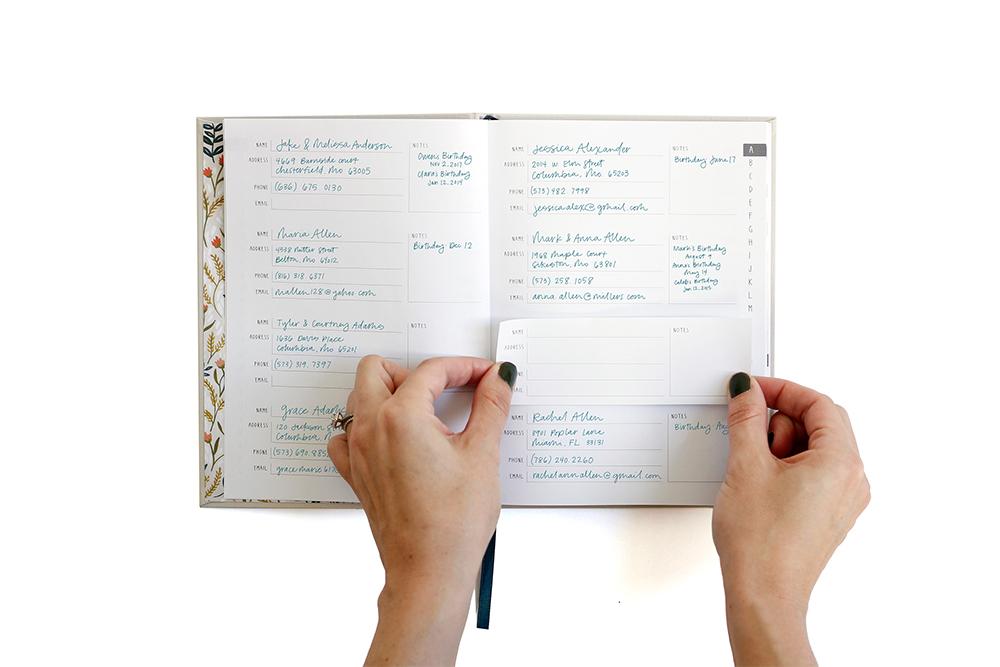 NAME Jake & Melissa Anderson
ADDRESS 4669 Burnside Court
Chesterfield, Mo 63005
PHONE (636) 675.0130
EMAIL
NOTES
Owen's Birthday
Nov 2, 2017
Clara's Birthday
Jan 12, 2014
NAME Maria Allen
ADDRESS 4538 Street
Belton, Mo 64012
PHONE (816) 318.6371
EMAIL mallen128@yahoo.com
NOTES
Birthday: Dec 12
NAME Tyler & Courtney Adams
ADDRESS 1636 Davis Place
Columbia, Mo 65201
PHONE (573) 319.7397
EMAIL
NOTES
NAME Grace Adams
ADDRESS 120 Jackson
Columbia, M
PHONE (573) 690.885
EMAIL gracemarie612
NAME Jessica Alexander
ADDRESS 2014 W. Elm Street
Columbia, Mo 65203
PHONE (573) 482.7998
EMAIL jessicaalex@gmail.com
NOTES
Birthday June 17
NAME Mark & Anna Allen
ADDRESS 1968 Maple Court
Sikeston, Mo 63801
PHONE (573) 258.1058
EMAIL anna.allen@millers.com
NOTES
Mark's Birthday
August 9
Anna's Birthday
May 14
Caleb's Birthday
Jan 12, 2015
NAME
ADDRESS
NE
MAIL
NOTES
NAME Rachel Allen
ADDRESS 8901 Poplar Lane
Miami, FL 33131
PHONE (786) 240.2260
EMAIL rachelannallen@gmail.com
NOTES
Birthday Aug
A
B
C
D
E
F
G
H
I
J
K
L
M